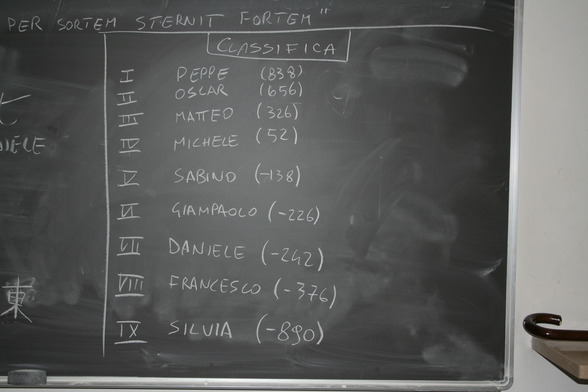 PER SORTEM STERNIT FORTEM"
CLASSIFICA
I PEPPE (838)
II OSCAR (656)
III MATTEO (326)
IV MICHELE (52)
V SABINO (-138)
VI GIAMPAOLO (-226)
VII DANIELE (-242)
VIII FRANCESCO (-376)
IX SILVIA (-890)
IELE
東